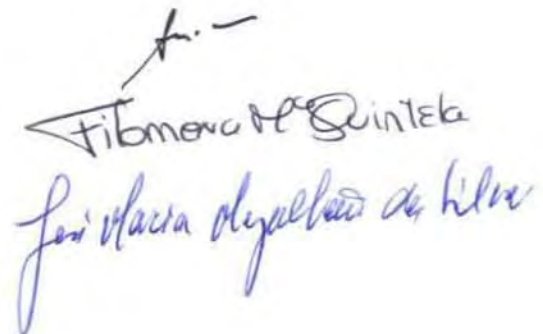 Filomena Mª Quintela
José Maria Magalhães da Silva